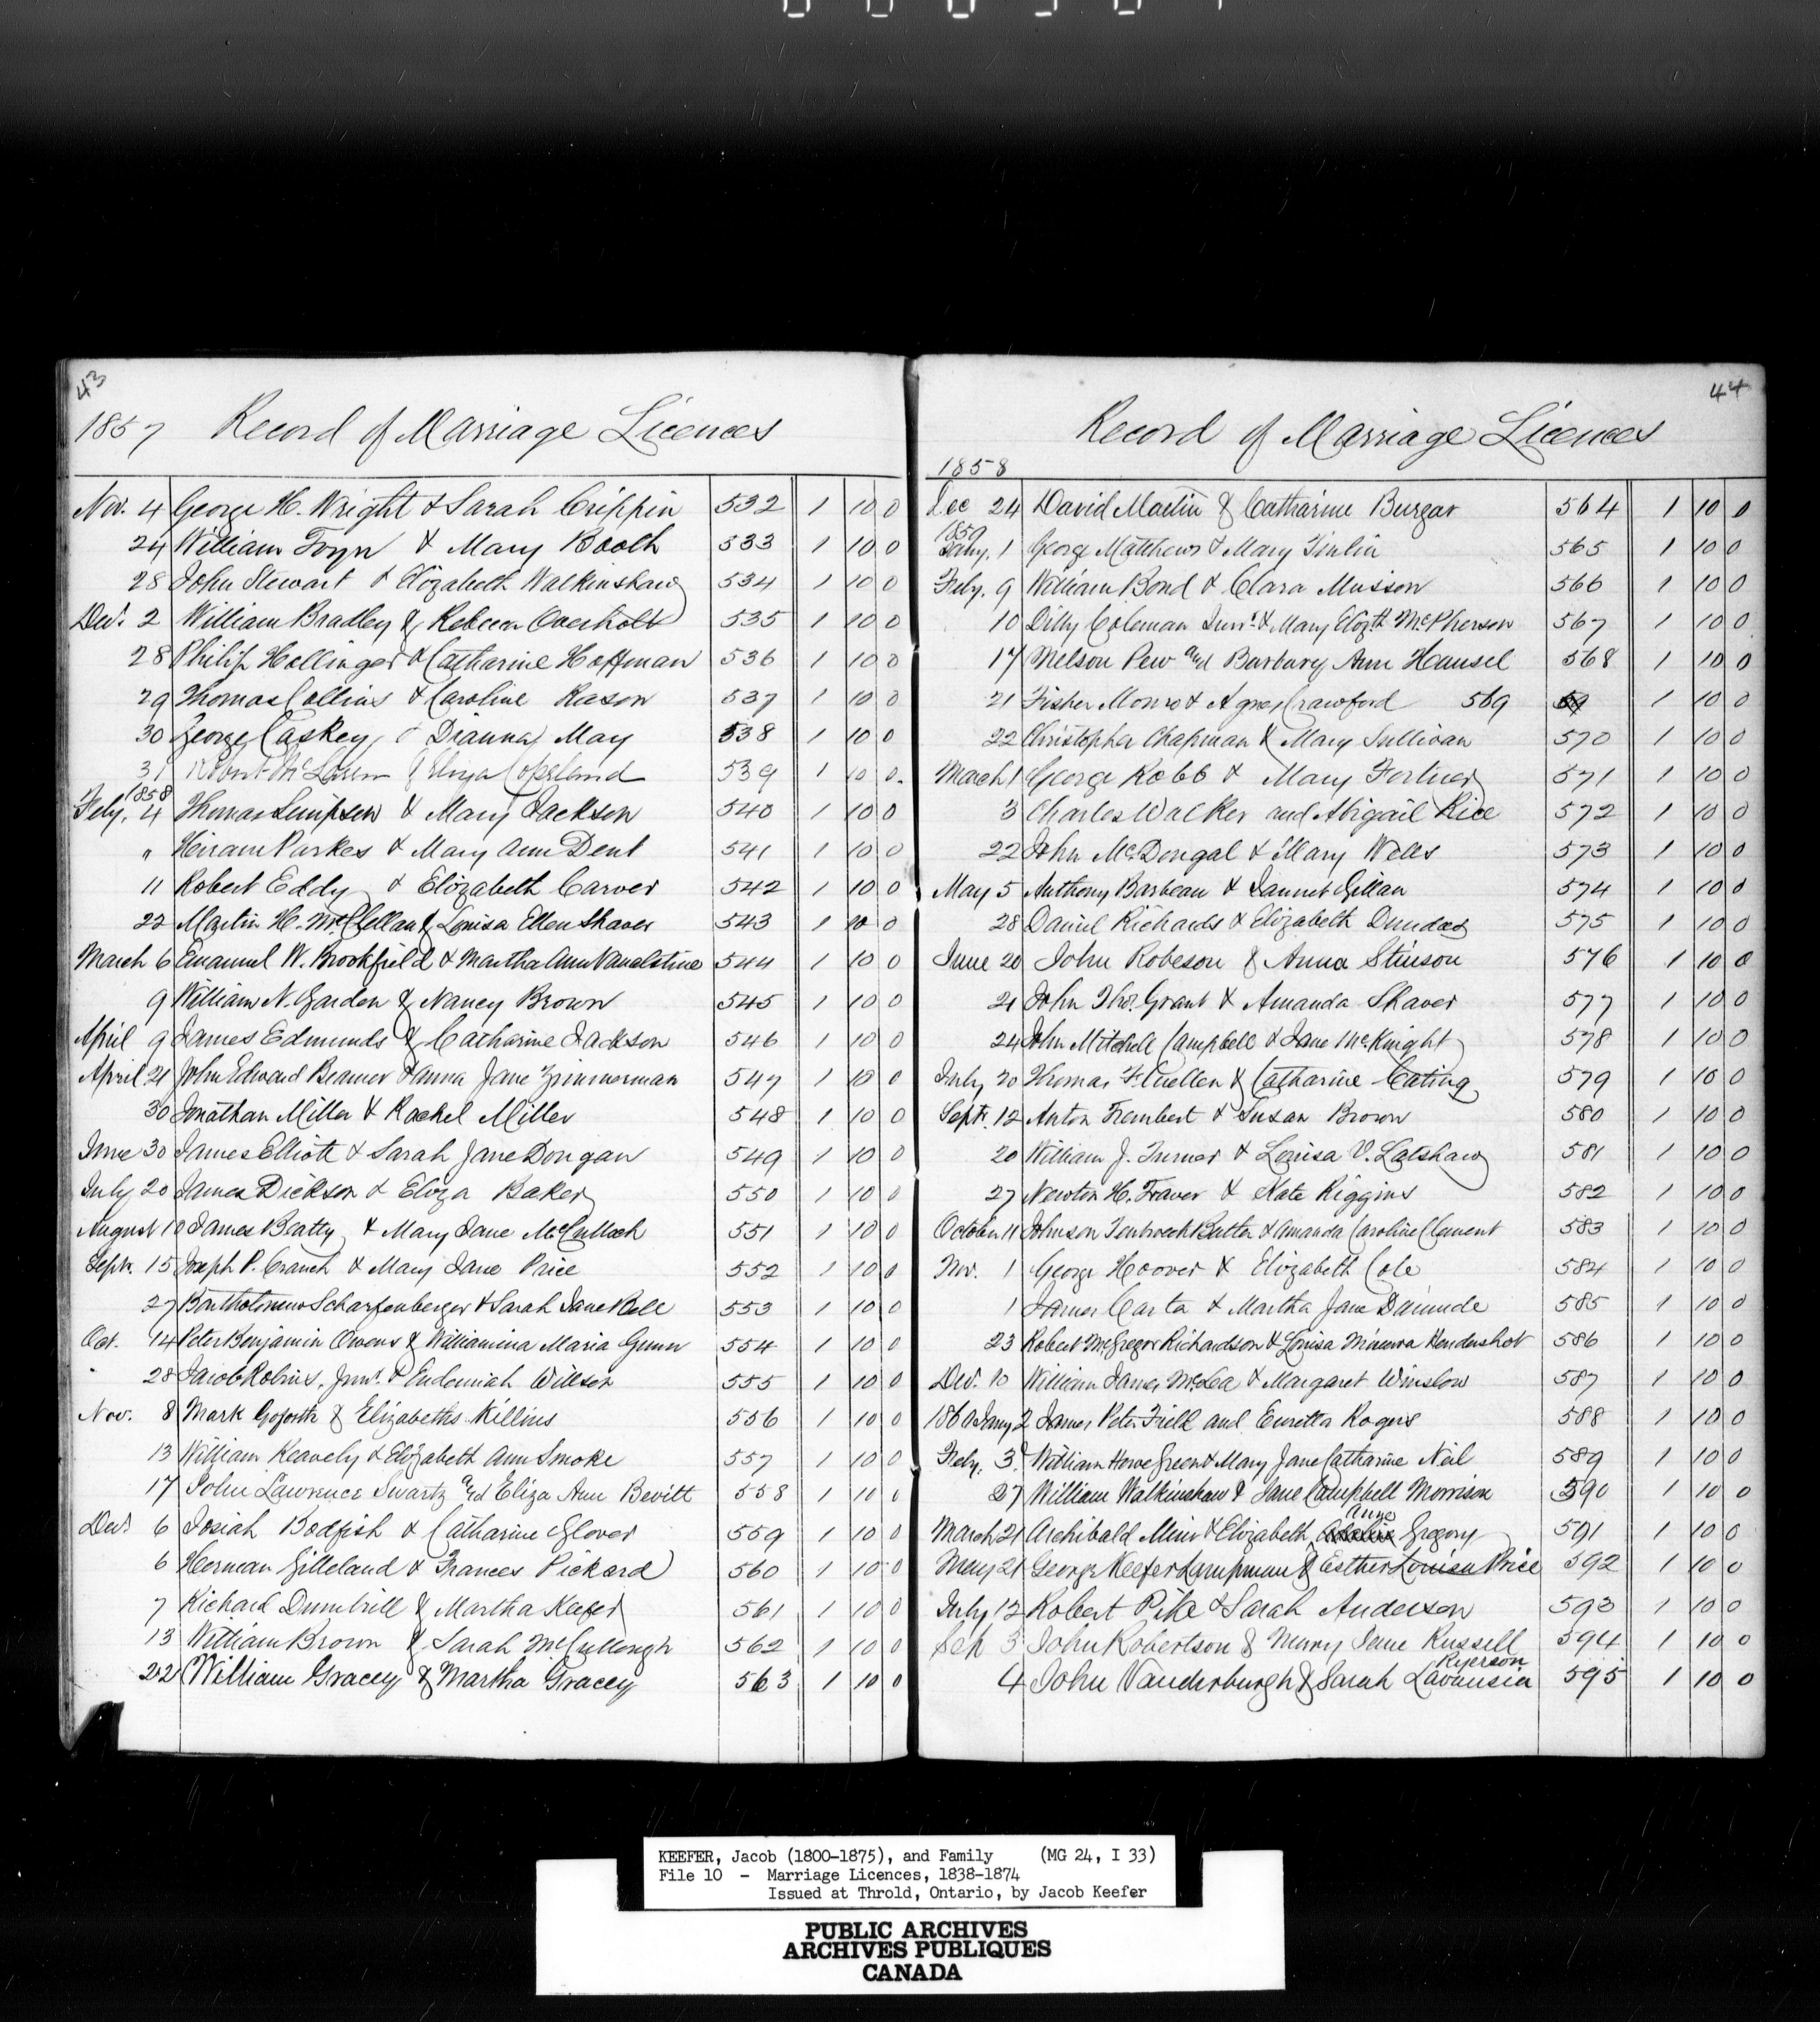 43
1857 Record of Marriage Licences
Nov. 4 George H. Wright & Sarah Crippin 532 1 10 0
24 William Toyn & Mary Booth 533 1 10 0
28 John Stewart & Elizabeth Walkinshaw 534 1 10 0
Decr 2 William Bradley & Rebecca Overholt 535 1 10 0
28 Philip Hollinger & Catharine Hoffman 536 1 10 0
29 Thomas Collins & Caroline Rason 537 1 10 0
30 George Caskey & Dianna May 538 1 10 0
31 Robert McLaren & Eliza Copeland 539 1 10 0
1858
Feby. 4 Thomas Simpson & Mary Jackson 540 1 10 0
" Hiram Parkes & Mary Ann Dent 541 1 10 0
11 Robert Eddy & Elizabeth Carver 542 1 10 0
22 Martin H. McClellan & Louisa Ellen Shaver 543 1 10 0
March 6 Emanuel W. Brookfield & Martha Ann Vanalstine 544 1 10 0
9 William N. Garden & Nancy Brown 545 1 10 0
April 9 James Edmunds & Catharine Jackson 546 1 10 0
April 21 John Edward Beamer & Anna Jane Zimmerman 547 1 10 0
30 Jonathan Miller & Rachel Miller 548 1 10 0
June 30 James Elliott & Sarah Jane Dongan 549 1 10 0
July 20 James Dickson & Eliza Baker 550 1 10 0
August 10 James Beatty & Mary Jane McCulloch 551 1 10 0
Septr. 15 Joseph P. Cranch & Mary Jane Price 552 1 10 0
27 Bartholomew Scharfenberger & Sarah Jane Bell 553 1 10 0
Oct. 14 Peter Benjamin Owens & Williamina Maria Gunn 554 1 10 0
" 28 Jacob Robins, Junr. & Eudemiah Willson 555 1 10 0
Nov. 8 Mark Goforth & Elizabeths Killins 556 1 10 0
13 William Keavely & Elizabeth Ann Smoke 557 1 10 0
17 John Lawrence Swartz and Eliza Ann Bevitt 558 1 10 0
Decr 6 Josiah Bodfish & Catharine Glover 559 1 10 0
6 Herman Gilleland & Frances Pickard 560 1 10 0
7 Richard Dumbrill & Martha Keefer 561 1 10 0
13 William Brown & Sarah McCullough 562 1 10 0
22 William Gracey & Martha Gracey 563 1 10 0
44
Record of Marriage Licences
1858
Dec 24 David Martin & Catharine Burgar 564 1 10 0
1859
Jany. 1 George Matthews & Mary Tinlin 565 1 10 0
Feby. 9 William Bond & Clara Musson 566 1 10 0
10 Dilly Coleman Junr. & Mary Elizth McPherson 567 1 10 0
17 Nelson Pew and Barbary Ann Hansel 568 1 10 0
21 Fisher Monro & Agnes Crawford 569 1 10 0
22 Christopher Chapman & Mary Sullivan 570 1 10 0
March 1 George Robb & Mary Fortner 571 1 10 0
3 Charles Walker and Abigail Rice 572 1 10 0
22 John McDongal & Mary Wells 573 1 10 0
May 5 Anthony Barbeau & Jannet Gillan 574 1 10 0
28 Daniel Richards & Elizabeth Dundas 575 1 10 0
June 20 John Robeson & Anna Stinson 576 1 10 0
21 John Thos. Grant & Amanda Shaver 577 1 10 0
24 John Mitchell Campbell & Jane McKnight 578 1 10 0
July 20 Thomas F. Cuellen & Catharine Cating 579 1 10 0
Septr. 12 Anton Frambert & Susan Brown 580 1 10 0
20 William J. Turner & Louisa V. Latshaw 581 1 10 0
27 Newton H. Traver & Kate Riggins 582 1 10 0
October 11 Johnson Tenbroeck Butler & Amanda Caroline Clement 583 1 10 0
Nov. 1 George Hoover & Elizabeth Cole 584 1 10 0
1 James Carta & Martha Jane Damude 585 1 10 0
23 Robert McGregor Richardson & Louisa Minerva Hendershot 586 1 10 0
Decr. 10 William James McLea & Margaret Winslow 587 1 10 0
1860 Jany 2 James Peter Field and Euretta Rogers 588 1 10 0
Feby. 3 William Howe Green & Mary Jane Catharine Neil 589 1 10 0
27 William Walkinshaw & Jane Campbell Morrison 590 1 10 0
March 21 Archibald Minn & Elizabeth Anne Gregory 591 1 10 0
May 21 George Keefer Lampman & Esther Louisa Price 592 1 10 0
July 12 Robert Pike & Sarah Anderson 593 1 10 0
Sep 3 John Robertson & Mary Jane Russell 594 1 10 0
4 John Vanderburgh & Sarah Lavausia Ryerson 595 1 10 0
KEEFER, Jacob (1800-1875), and Family (MG 24, I 33)
File 10 - Marriage Licences, 1838-1874
Issued at Throld, Ontario, by Jacob Keefer
PUBLIC ARCHIVES
ARCHIVES PUBLIQUES
CANADA